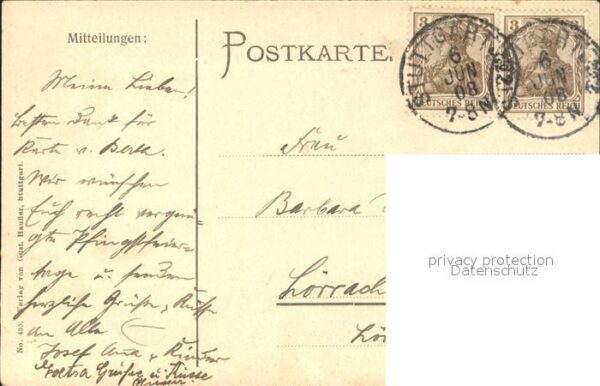 Mitteilungen:
POSTKARTE.
3
3
DEUTSCHES REICH
DEUTSCHES REICH
STUTTGART
6
JUN
08
7-8N
STUTTGART
6
JUN
08
7-8N
Meine Lieben!
besten Dank für
Karte v. Berta.
Wir wünschen
Euch recht vergnü-
gte Pfingstfeier-
tage u. senden
herzliche Grüße, Küsse
an Alle
Josef Anna, Kinder
Extra Grüsse u Küsse
Frau
Barbara
Lörrach
privacy protection
Datenschutz
No. 435. Verlag von Gust. Haußer, Stuttgart.